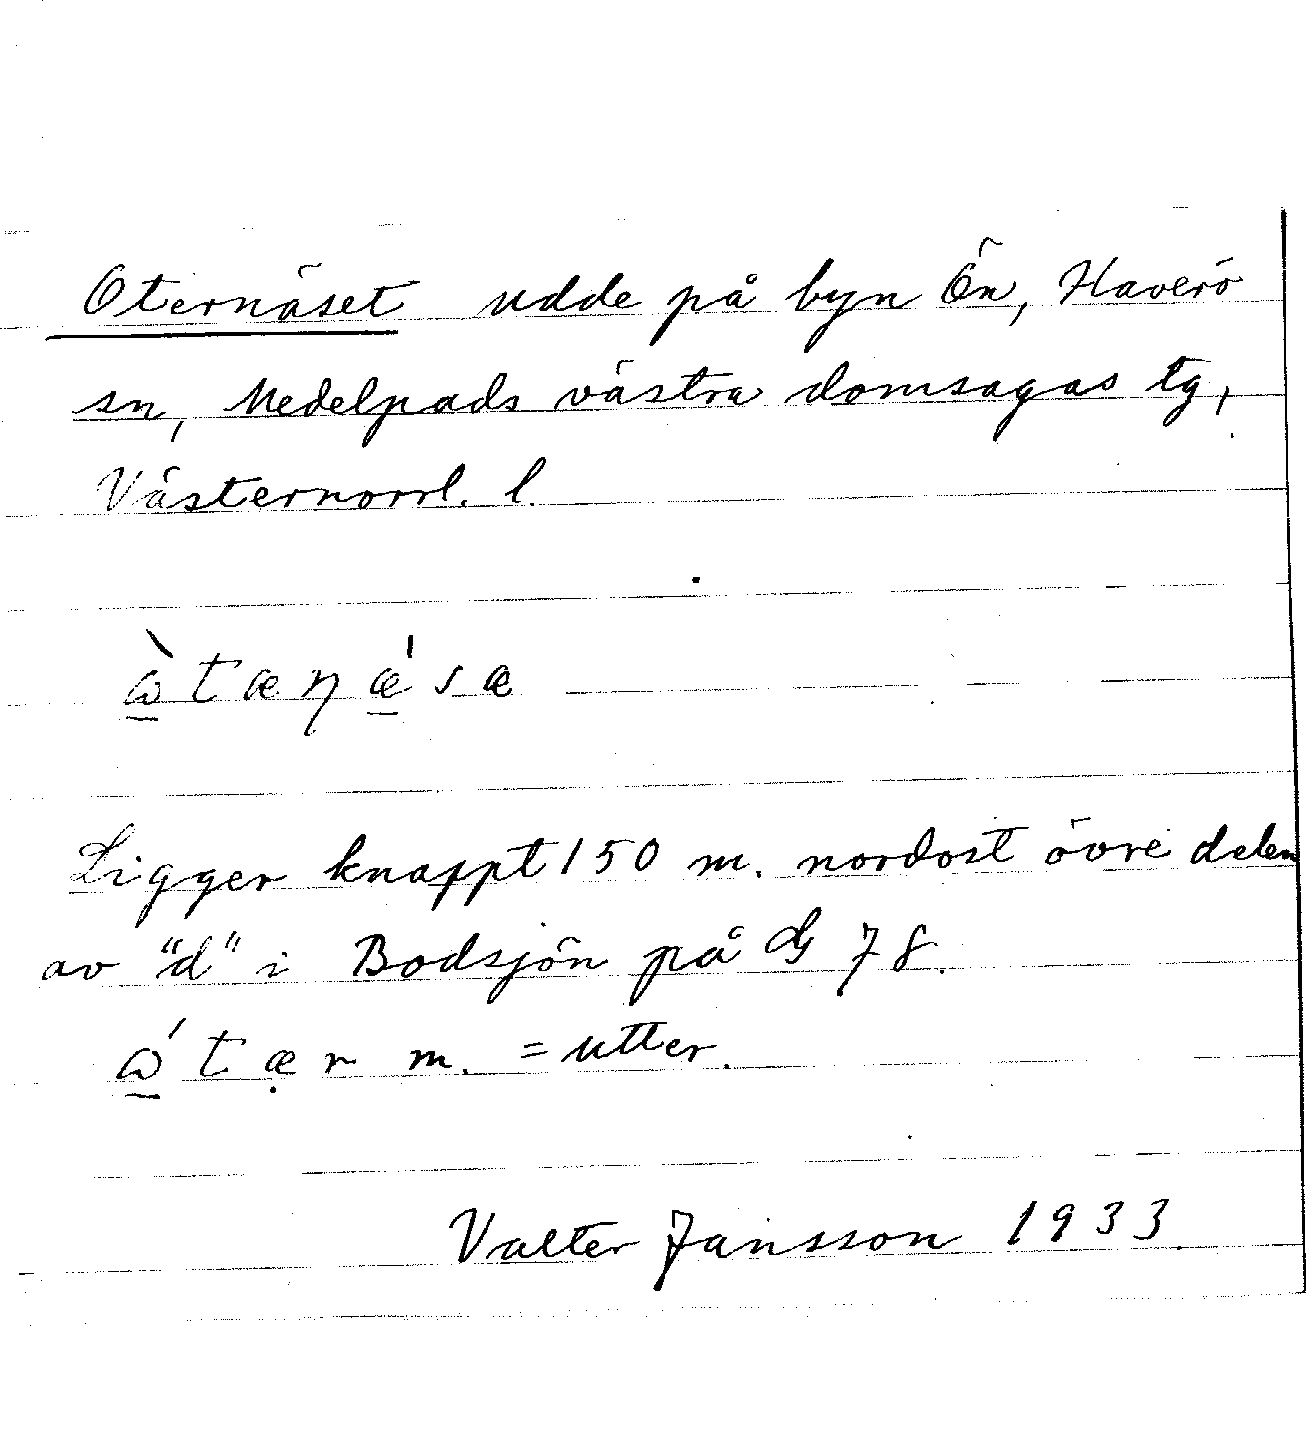 Oternäset udde på byn Ön, Haverö
sn, Medelpads västra domsagas tg,
Västernorrl. l.
ὼ̲tæŋǽ̲sæ
Ligger knappt 150 m. nordost övre delen
av "d" i Bodsjön på G 78.
ώ̲tæ̣r m. = utter.
Valter Jansson 1933.